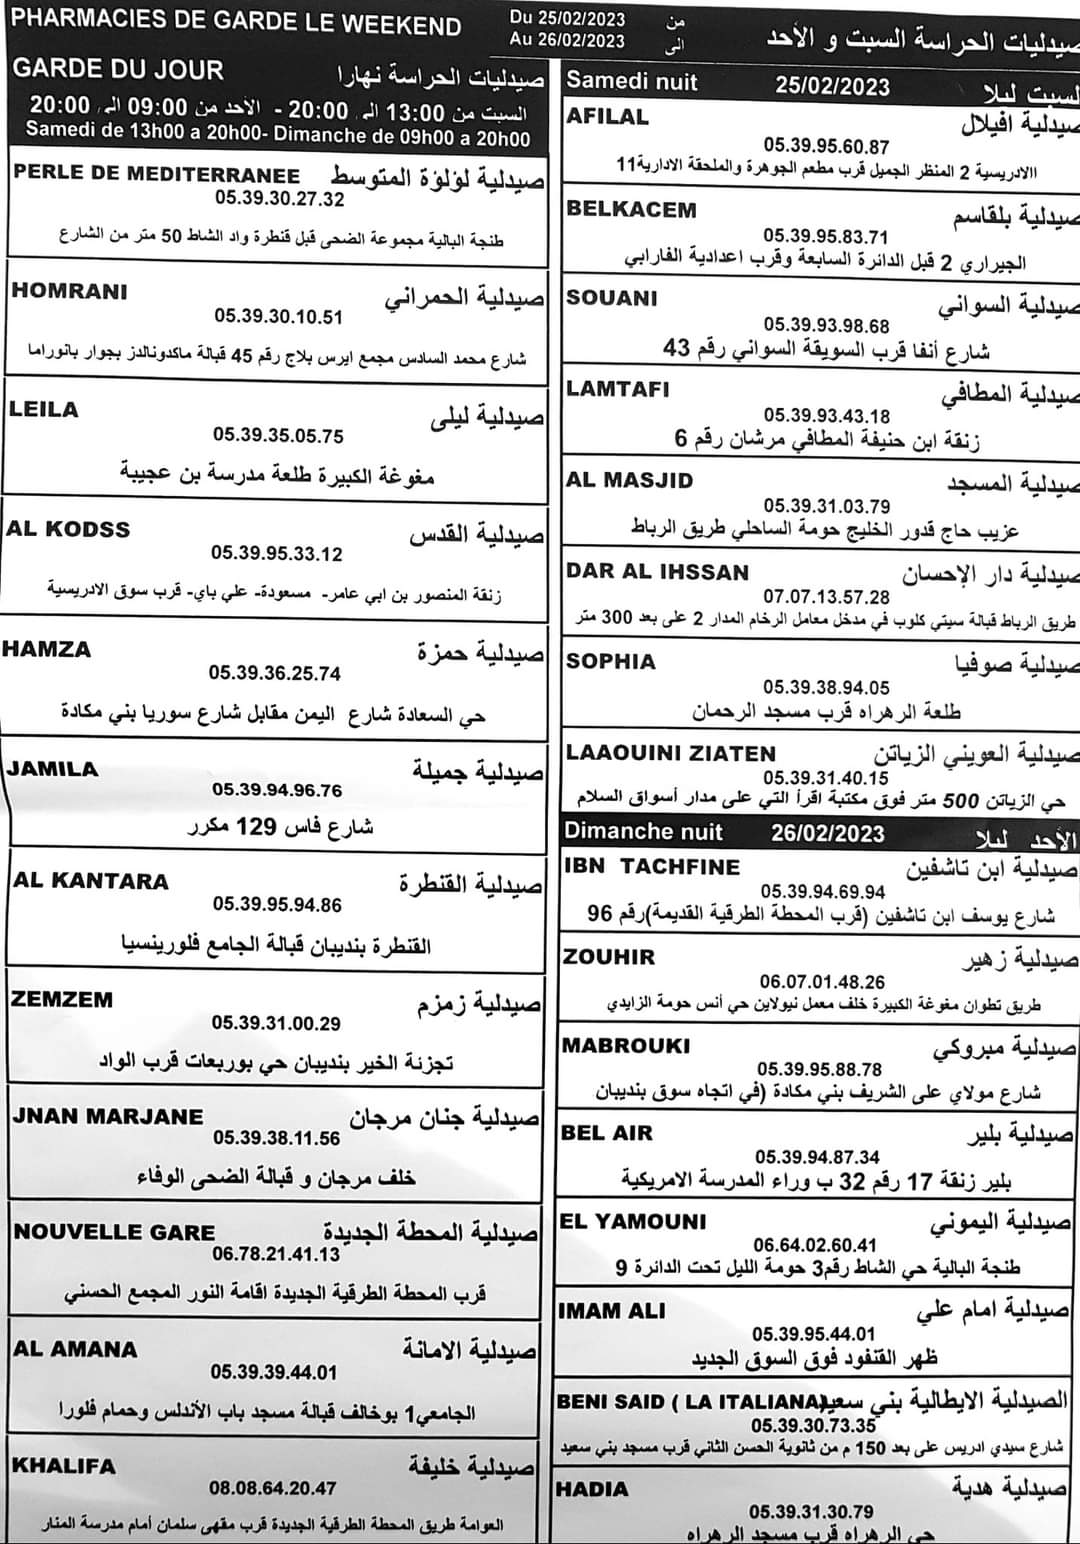 PHARMACIES DE GARDE LE WEEKEND
Du 25/02/2023 من
Au 26/02/2023 الى
صيدليات الحراسة السبت و الأحد
GARDE DU JOUR صيدليات الحراسة نهارا
السبت من 13:00 الى 20:00 - الأحد من 09:00 الى 20:00
Samedi de 13h00 a 20h00- Dimanche de 09h00 a 20h00
PERLE DE MEDITERRANEE صيدلية لؤلؤة المتوسط
05.39.30.27.32
طنجة البالية مجموعة الضحى قبل قنطرة واد الشاط 50 متر من الشارع
HOMRANI صيدلية الحمراني
05.39.30.10.51
شارع محمد السادس مجمع ايرس بلاج رقم 45 قبالة ماكدونالدز بجوار بانوراما
LEILA صيدلية ليلى
05.39.35.05.75
مغوغة الكبيرة طلعة مدرسة بن عجيبة
AL KODSS صيدلية القدس
05.39.95.33.12
زنقة المنصور بن ابي عامر- مسعودة- علي باي- قرب سوق الادريسية
HAMZA صيدلية حمزة
05.39.36.25.74
حي السعادة شارع اليمن مقابل شارع سوريا بني مكادة
JAMILA صيدلية جميلة
05.39.94.96.76
شارع فاس 129 مكرر
AL KANTARA صيدلية القنطرة
05.39.95.94.86
القنطرة بنديبان قبالة الجامع فلورينسيا
ZEMZEM صيدلية زمزم
05.39.31.00.29
تجزئة الخير بنديبان حي بوربعات قرب الواد
JNAN MARJANE صيدلية جنان مرجان
05.39.38.11.56
خلف مرجان و قبالة الضحى الوفاء
NOUVELLE GARE صيدلية المحطة الجديدة
06.78.21.41.13
قرب المحطة الطرقية الجديدة اقامة النور المجمع الحسني
AL AMANA صيدلية الامانة
05.39.39.44.01
الجامعي1 بوخالف قبالة مسجد باب الأندلس وحمام فلورا
KHALIFA صيدلية خليفة
08.08.64.20.47
العوامة طريق المحطة الطرقية الجديدة قرب مقهى سلمان أمام مدرسة المنار
Samedi nuit 25/02/2023 السبت ليلا
AFILAL صيدلية افيلال
05.39.95.60.87
الادريسية 2 المنظر الجميل قرب مطعم الجوهرة والملحقة الادارية11
BELKACEM صيدلية بلقاسم
05.39.95.83.71
الجيراري 2 قبل الدائرة السابعة وقرب اعدادية الفارابي
SOUANI صيدلية السواني
05.39.93.98.68
شارع أنفا قرب السويقة السواني رقم 43
LAMTAFI صيدلية المطافي
05.39.93.43.18
زنقة ابن حنيفة المطافي مرشان رقم 6
AL MASJID صيدلية المسجد
05.39.31.03.79
عزيب حاج قدور الخليج حومة الساحلي طريق الرباط
DAR AL IHSSAN صيدلية دار الإحسان
07.07.13.57.28
طريق الرباط قبالة سيتي كلوب في مدخل معامل الرخام المدار 2 على بعد 300 متر
SOPHIA صيدلية صوفيا
05.39.38.94.05
طلعة الرهراه قرب مسجد الرحمان
LAAOUINI ZIATEN صيدلية العويني الزياتن
05.39.31.40.15
حي الزياتن 500 متر فوق مكتبة اقرأ التي على مدار أسواق السلام
Dimanche nuit 26/02/2023 الأحد ليلا
IBN TACHFINE صيدلية ابن تاشفين
05.39.94.69.94
شارع يوسف ابن تاشفين (قرب المحطة الطرقية القديمة)رقم 96
ZOUHIR صيدلية زهير
06.07.01.48.26
طريق تطوان مغوغة الكبيرة خلف معمل نيولاين حي أنس حومة الزايدي
MABROUKI صيدلية مبروكي
05.39.95.88.78
شارع مولاي على الشريف بني مكادة (في اتجاه سوق بنديبان
BEL AIR صيدلية بلير
05.39.94.87.34
بلير زنقة 17 رقم 32 ب وراء المدرسة الامريكية
EL YAMOUNI صيدلية اليموني
06.64.02.60.41
طنجة البالية حي الشاط رقم3 حومة الليل تحت الدائرة 9
IMAM ALI صيدلية امام علي
05.39.95.44.01
ظهر القنفود فوق السوق الجديد
BENI SAID ( LA ITALIANA) الصيدلية الايطالية بني سعيد
05.39.30.73.35
شارع سيدي ادريس على بعد 150 م من ثانوية الحسن الثاني قرب مسجد بني سعيد
HADIA صيدلية هدية
05.39.31.30.79
حي الرهراه قرب مسجد الرهراه